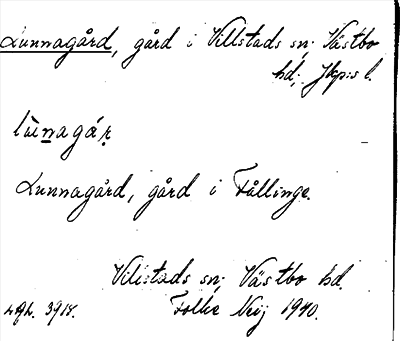 Lunnagård, gård i Villstads sn; Västbo
hd; Jkp:s l.
lùnagár
Lunnagård, gård i Fållinge.
Villstads sn; Västbo hd.
Folke Neij 1940.